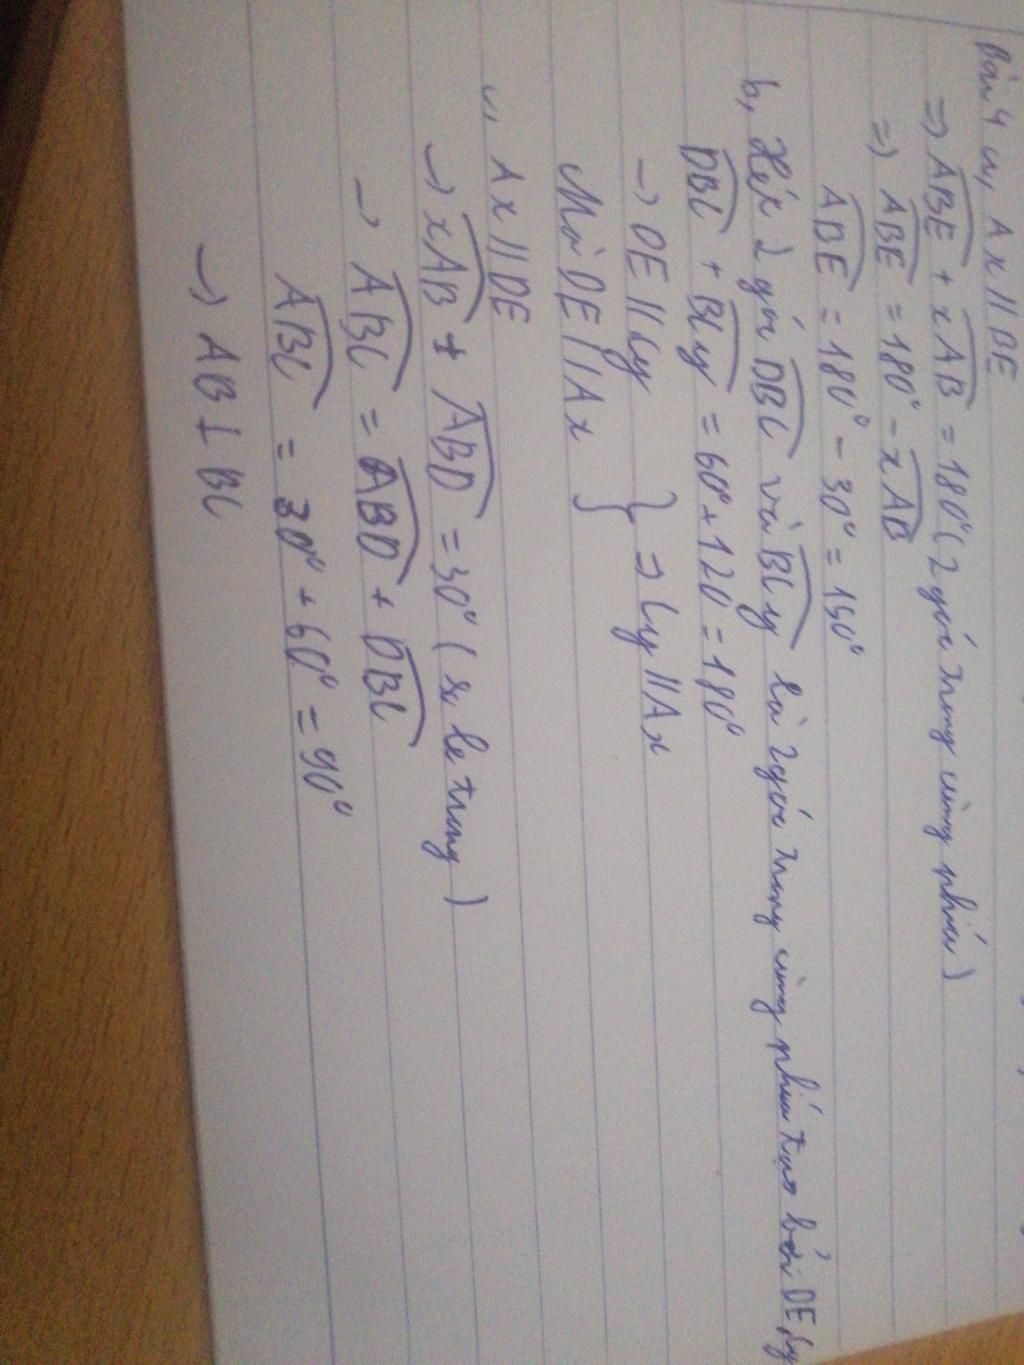 Bài 4 a, Ax // DE
=> ABE + xAB = 180° (2 góc trong cùng phía)
=> ABE = 180° - xAB
ABE = 180° - 30° = 150°
b, Xét 2 góc DBC và BCy là 2 góc trong cùng phía tạo bởi DE, Cy
DBC + BCy = 60° + 120 = 180°
→ DE // Cy
Mà DE // Ax } => Cy // Ax
c, Ax // DE
→ xAB + ABD = 30° (so le trong)
→ ABC = ABD + DBC
ABC = 30° + 60° = 90°
→ AB ⊥ BC